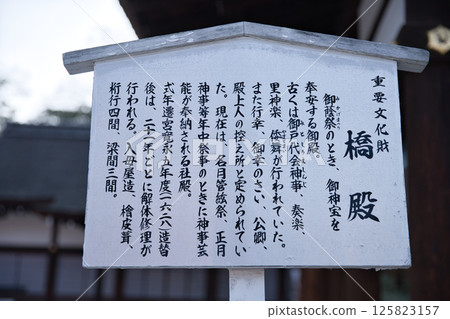 重要文化財
橋殿
御蔭祭のとき、御神宝を
奉安する御殿
古くは御戸代会神事、奏楽、
里神楽、倭舞が行われていた。
また行幸、御幸のさい、公卿、
殿上人の控え所と定められてい
た。現在は、名月管絃祭、正月
神事等年中祭事のときに神事芸
能が奉納される社殿。
式年遷宮寛永五年度(一六二六)造替
後は、二十一年ごとに解体修理が
行われる。入母屋造、檜皮葺、
桁行四間、梁間三間。
pixta.jp - 125823157